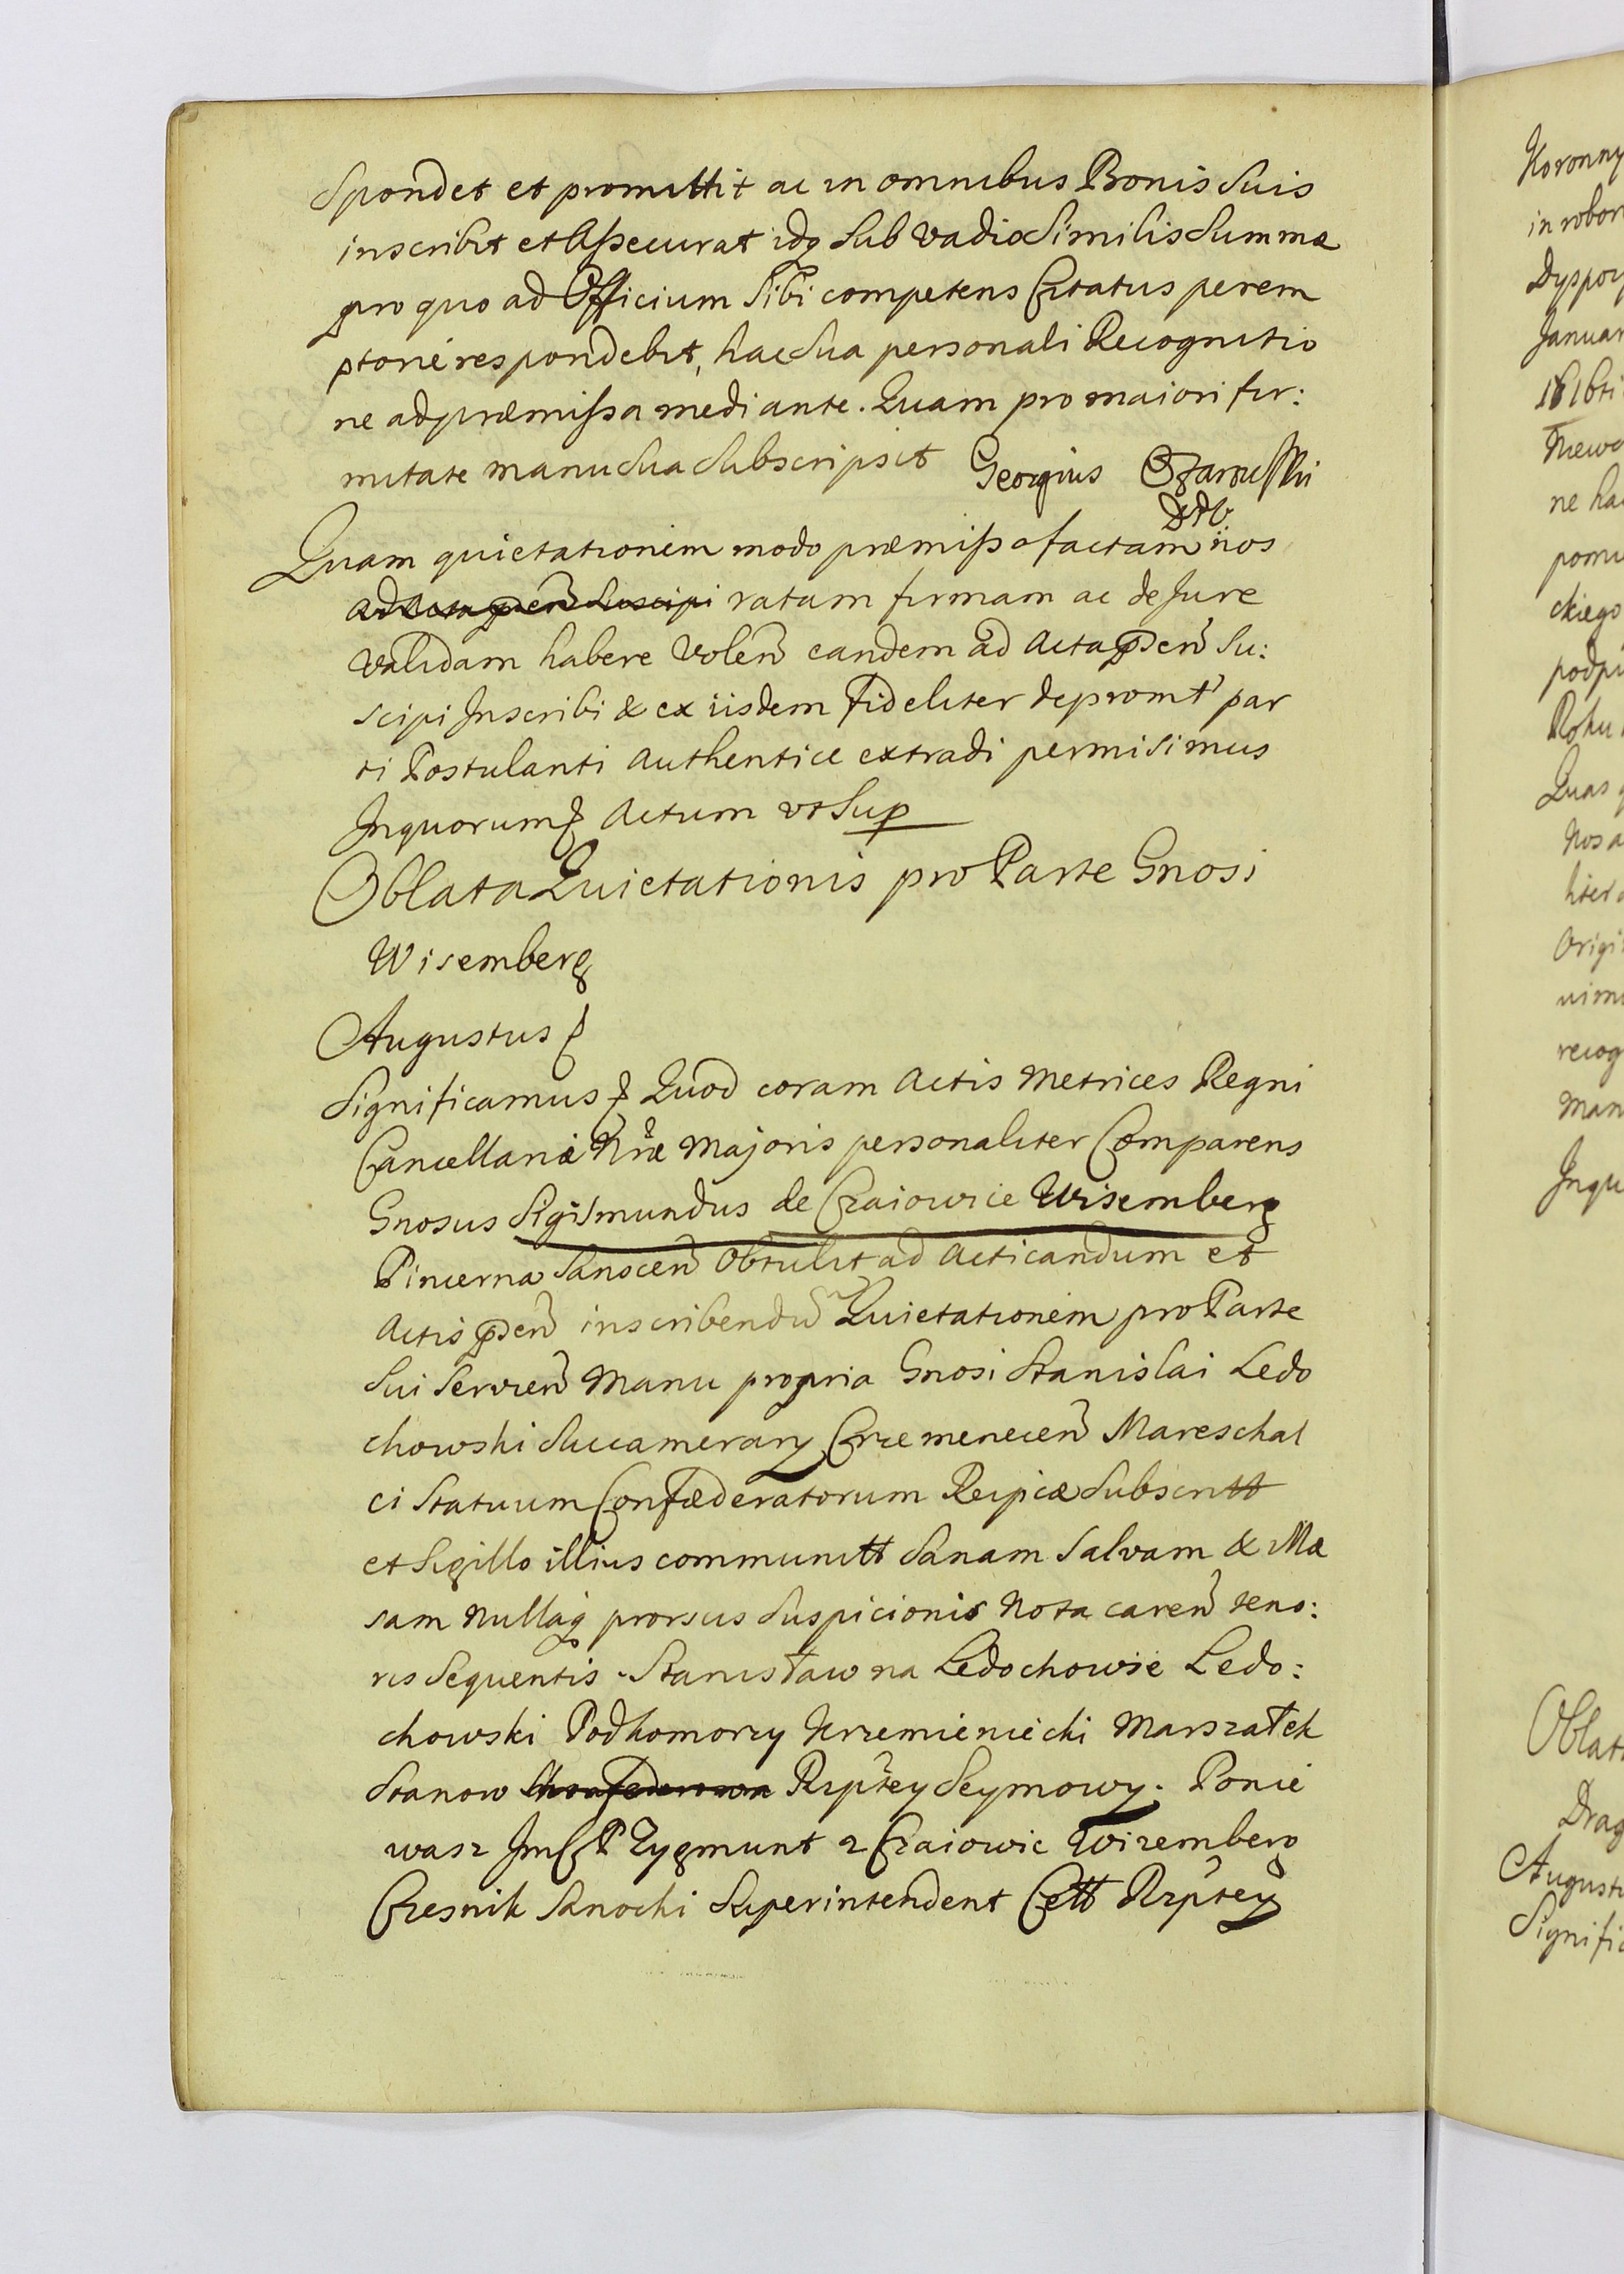 Spondet et promittit ac in omnibus Bonis Suis
inscribit et Assecurat idq Sub vadio Similis Summæ
pro quo ad Officium Sibi competens Citatus perem
ptorie respondebit, hac Sua personali Recognitio
ne ad præmissa mediante. Quam pro maiori fir:
mitate manu Sua Subscripsit Georgius Ożarusski
Quam quietationem modo præmisso factam nos
ad Acta psen̄ Suscipi ratam firmam ac de Jure
validam habere volen̄ eandem ad Acta psen̄ Su:
scipi Inscribi & ex iisdem Fideliter depromt' par
ti Postulanti Authentice extradi permisimus
In quorum Actum vt Sup
Oblata Quietationis pro Parte Gnosi
Wisemberg
Augustus
Significamus Quod coram Actis Metrices Regni
Cancellariæ Nræ Majoris personaliter Comparens
Gnosus Sigismundus de Czaiowice Wisemberg
Pincerna Sanocen̄ Obtulit ad Acticandum et
Actis psen̄ inscribendū Quietationem pro Parte
Sui Servien̄ Manu propria Gnosi Stanislai Ledo
chowski Succamerary Crzemenecen̄ Mareschal
ci Statuum Confæderatorum Reipcæ Subscritt
et Sigillo illius communitt Sanam Salvam & Illæ
sam Nullaq prorsus Suspicionis Nota caren̄ teno:
ris Sequentis. Stanisław na Ledochowie Ledo:
chowski Podkomorzy Krzemieniecki Marszałek
Stanow Skonfederowa Rzptey Seymowy. Ponie
wasz Jmć P Zygmunt z Czaiowic Wizemberg
Czesnik Sanocki Superintendent Cett Rzptey
Koronny
in robor
Januar
ne ha
ckiego
podpi
Roku
Quas
Nos a
liter
Origi
uimu
recog
Man
Inqu
Oblat
Drag
Augustu
Signific